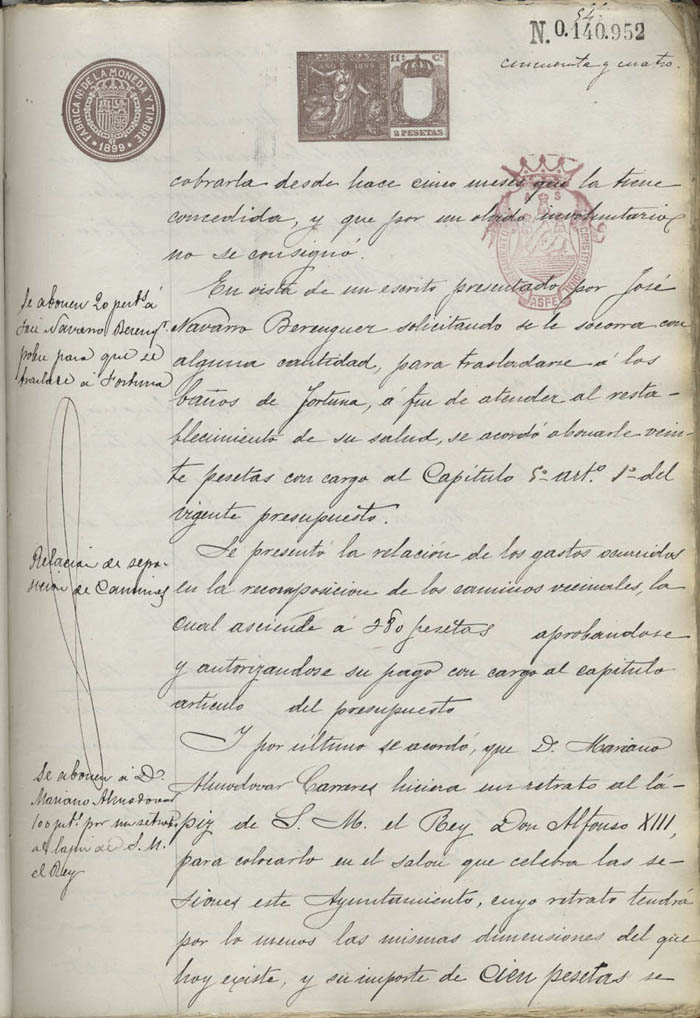 54
N. 0.140.952
cincuenta y cuatro.
FABRICA NL. DE LA MONEDA Y TIMBRE
1899
AÑO 1899
11ª C.
2 PESETAS
ASPE
cobrarla desde hace cinco meses que la tiene
concedida, y que por un olvido involuntario
no se consignó.
Se abonen 20 pent.s á
José Navarro Bereng.r
pobre para que se
traslade á Fortuna
En vista de un escrito presentado por José
Navarro Berenguer solicitando se le socorra con
alguna cantidad, para trasladarse á los
baños de Fortuna, á fin de atender al resta-
blecimiento de su salud, se acordó abonarle vein-
te pesetas con cargo al Capitulo 5º artº. 1º del
vigente presupuesto.
Relacion de repo-
sicion de Caminos
Se presentó la relación de los gastos ocurridos
en la recomposicion de los caminos vecinales, la
cual asciende á 280 pesetas aprobandose
y autorizandose su pago con cargo al capitulo
articulo del presupuesto
Se abonen á D.
Mariano Almodovar
100 pts. por un retrato
al lapiz de S. M.
el Rey
Y por último se acordó, que D. Mariano
Almodovar Carreres hiciera un retrato al lá-
piz de S. M. el Rey Don Alfonso XIII,
para colocarlo en el salon que celebra las se-
siones este Ayuntamiento, cuyo retrato tendrá
por lo menos las mismas dimensiones del que
hoy existe, y su importe de Cien pesetas se